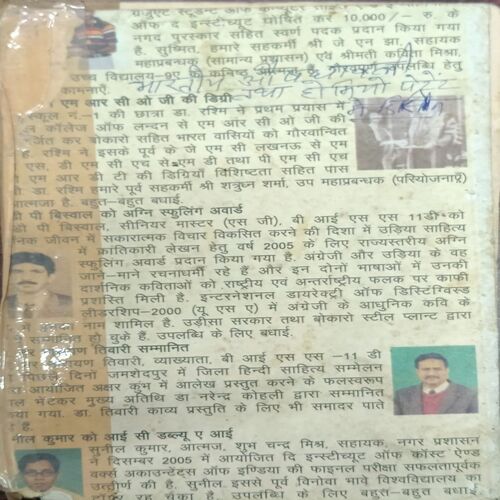 ग्रेजुएट स्टूडेन्ट ऑफ कम्प्यूटर
ऑफ द इन्स्टीच्यूट घोषित कर 10,000/- रु. के
नगद पुरस्कार सहित स्वर्ण पदक प्रदान किया गया
है. सुष्मित, हमारे सहकर्मी श्री जे एन झा, सहायक
महाप्रबन्धक (सामान्य प्रशासन) एवं श्रीमती कविता मिश्रा,
उच्च विद्यालय-9ए की उपलब्धि हेतु
कामनाएँ.
भारतीय
तथा होमियो
एम आर सी ओ जी की डिग्री
स्कूल नं.-1 की छात्रा डा. रश्मि ने प्रथम प्रयास में
ल कॉलेज ऑफ लन्दन से एम आर सी ओ जी की
र्जित कर बोकारो सहित भारत वासियों को गौरवान्वित
है. रश्मि ने इसके पूर्व के जे एम सी लखनऊ से एम
एस, डी एम सी एच से एम डी तथा पी एम सी एच
एम आर डी टी की डिग्रियाँ विशिष्टता सहित पास
डा. रश्मि हमारे पूर्व सहकर्मी श्री शत्रुघ्न शर्मा, उप महाप्रबन्धक (परियोजनाएँ)
आत्मजा है. बहुत-बहुत बधाई.
डी पी बिस्वाल को अग्नि स्फुलिंग अवार्ड
डी पी बिस्वाल, सीनियर मास्टर (एस जी), बी आई एस एस 11डी को
नक जीवन में सकारात्मक विचार विकसित करने की दिशा में उड़िया साहित्य
में क्रांतिकारी लेखन हेतु वर्ष 2005 के लिए राज्यस्तरीय अग्नि
स्फुलिंग अवार्ड प्रदान किया गया है. अंग्रेजी और उड़िया के वह
जाने-माने रचनाधर्मी रहे हैं और इन दोनों भाषाओं में उनकी
दार्शनिक कविताओं को राष्ट्रीय एवं अन्तर्राष्ट्रीय फलक पर काफी
प्रशस्ति मिली है. इन्टरनेशनल डायरेक्ट्री ऑफ डिस्टिंग्विस्ड
लीडरशिप-2000 (यू एस ए) में अंग्रेजी के आधुनिक कवि के
नाम शामिल है. उड़ीसा सरकार तथा बोकारो स्टील प्लान्ट द्वारा
सम्मानित हो चुके हैं. उपलब्धि के लिए बधाई.
तिवारी सम्मानित
तिवारी, व्याख्याता, बी आई एस एस -11 डी
दिनों जमशेदपुर में जिला हिन्दी साहित्य सम्मेलन
आयोजित अक्षर कुंभ में आलेख प्रस्तुत करने के फलस्वरूप
ल भेंटकर मुख्य अतिथि डा नरेन्द्र कोहली द्वारा सम्मानित
या गया. डा. तिवारी काव्य प्रस्तुति के लिए भी समादर पाते
हैं.
नील कुमार को आई सी डब्ल्यू ए आई
सुनील कुमार, आत्मज, शुभ चन्द्र मिश्र, सहायक, नगर प्रशासन
ने दिसम्बर 2005 में आयोजित दि इन्स्टीच्यूट ऑफ कॉस्ट ऐण्ड
वर्क्स अकाउन्टेंट्स ऑफ इण्डिया की फाइनल परीक्षा सफलतापूर्वक
उत्तीर्ण की है. सुनील, इससे पूर्व विनोवा भावे विश्वविद्यालय का
टॉपर रह चुका है. उपलब्धि के लिए बहुत-बहुत बधाई